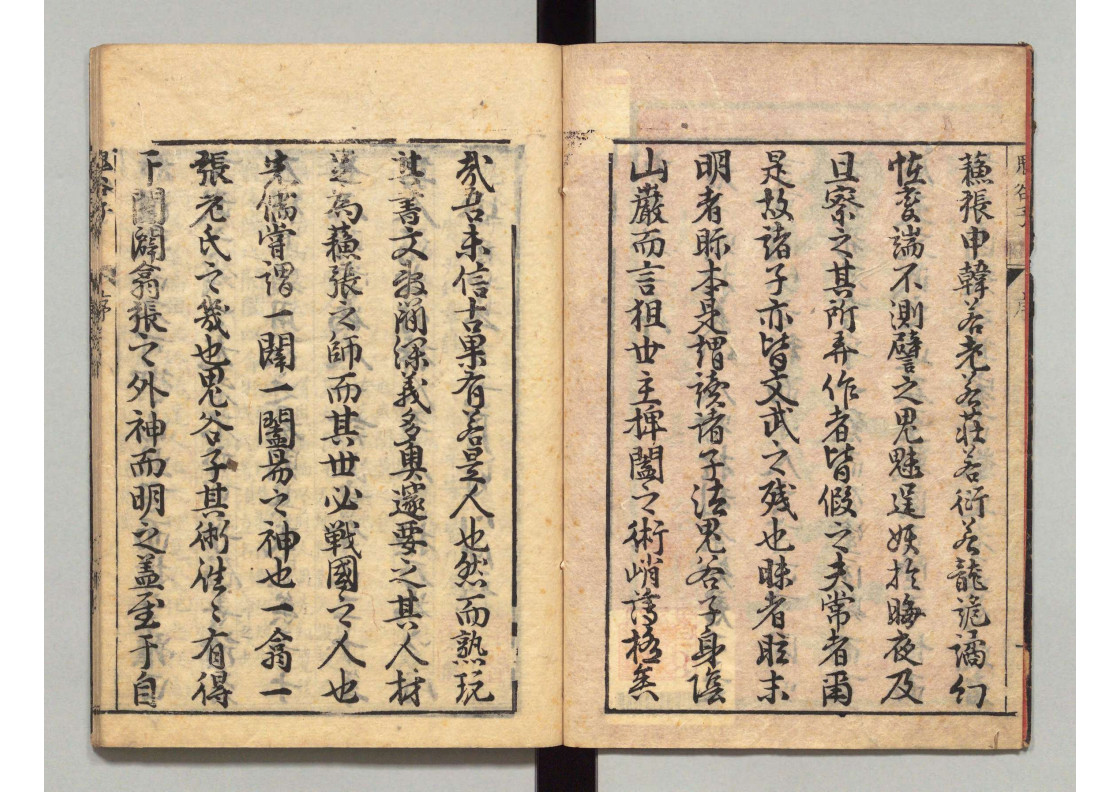 蘓張申韓若老若莊若衍若龍詭譎幻
恠変端不測譬之鬼魅逞妖於晦夜及
旦察之其所弄作者皆假之夫常者爾
是故諸子亦皆文武之残也昧者眩末
明者眎本是謂读諸子法鬼谷子身隂
山巖而言狙世主捭闔之術峭薄極矣
鬼谷子 序
㢤吾未信古果有若是人也然而熟玩
其書文致簡深義多奥邃要之其人材
遂為蘓張之師而其世必戦國之人也
先儒嘗謂一闢一闔易之神也一翕一
張老氏之幾也鬼谷子其術往〻有得
于闔闢翕張之外神而明之盖至于自
鬼谷子 序